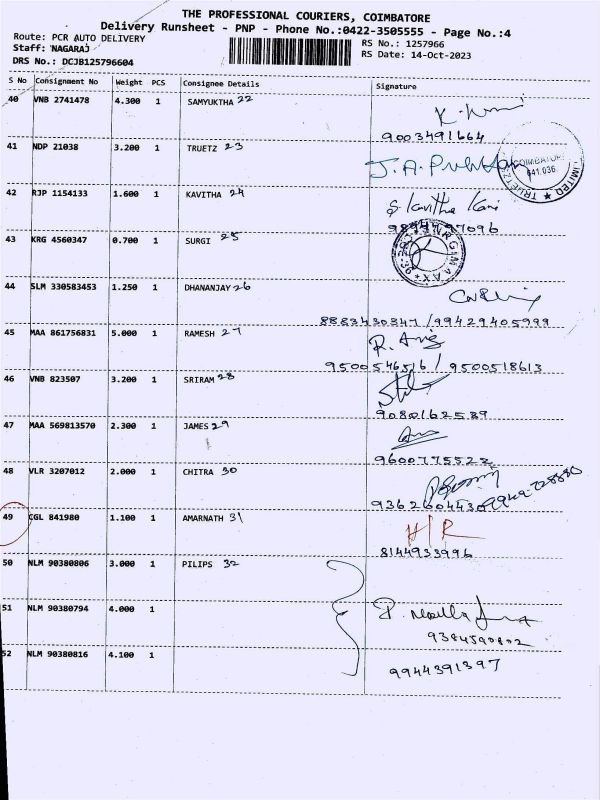 THE PROFESSIONAL COURIERS, COIMBATORE
Delivery Runsheet - PNP - Phone No.:0422-3505555 - Page No.:4
Route: PCR AUTO DELIVERY RS No.: 1257966
Staff: NAGARAJ RS Date: 14-Oct-2023
DRS No.: DCJB125796604
S No Consignment No Weight PCS Consignee Details Signature
40 VNB 2741478 4.300 1 SAMYUKTHA 22
9003491664
41 NDP 21038 3.200 1 TRUETZ 23
COIMBATORE
641 036
LIMITED ★ TRUETZ
42 RJP 1154133 1.600 1 KAVITHA 24
S. Kavitha
43 KRG 4560347 0.700 1 SURGI 25
44 SLM 330583453 1.250 1 DHANANJAY 26
8883430847 / 99429405999
45 MAA 861756831 5.000 1 RAMESH 27
9500546516 / 9500518613
46 VNB 823507 3.200 1 SRIRAM 28
9080162589
47 MAA 569813570 2.300 1 JAMES 29
9600775522
48 VLR 3207012 2.000 1 CHITRA 30
49 CGL 841980 1.100 1 AMARNATH 31
H/R
8144933996
50 NLM 90380806 3.000 1 PILIPS 32
51 NLM 90380794 4.000 1
9384590802
52 NLM 90380816 4.100 1
9944391397